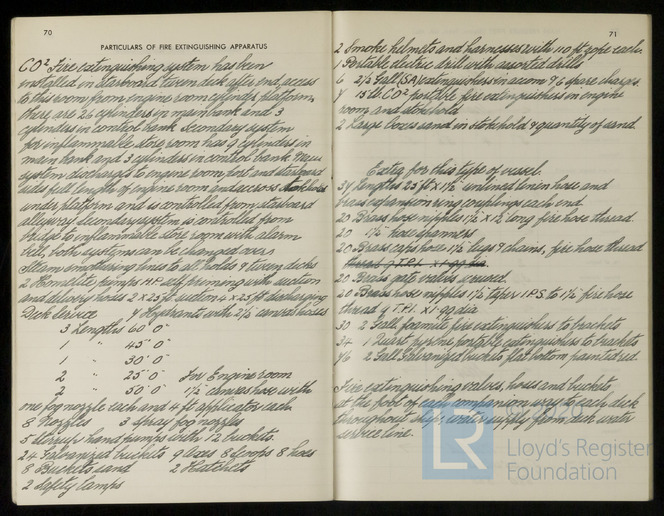 70
PARTICULARS OF FIRE EXTINGUISHING APPARATUS
CO² Fire extinguishing system has been
installed in starboard tween deck after end, access
to this room from engine room cylinder platform,
there are 26 cylinders in main bank and 3
cylinders in control bank Secondary system
for inflammable store room has 9 cylinders in
main bank and 3 cylinders in control bank Main
system discharges to engine room port and starboard
side full length of engine room and across stokehold
under platform and is controlled from starboard
alleyway secondary system is controlled from
bridge to inflammable store room with alarm
bell, both systems can be changed over.
Steam smothering lines to all holds & tween decks
2 Homelite pumps HP self priming with suction
and delivery hoses 2 x 25 ft suction 4 x 25 ft discharging
Deck service 4 Hydrants with 2½ canvas hoses
3 Lengths 60' 0"
1 " 45' 0"
1 " 30' 0"
2 " 25' 0" For Engine room
2 " 50' 0" 1½ canvas hose with
one fog nozzle each and 4 ft applicator each
8 Nozzles 3 spray fog nozzles
5 stirrup hand pumps with 12 buckets.
24 Galvanized buckets 9 axes 8 scoops 8 hoes
8 Buckets sand 2 Hatchets
2 safety lamps
71
2 Smoke helmets and harnesses with 110 ft rope each.
1 Portable electric drill with assorted drills
6 2½ Gall (SA) extinguishers in accom & 6 spare charges.
4 15 lb CO² portable fire extinguishers in engine
room and stokehold
2 Large boxes sand in stokehold & quantity of sand.
Extra for this type of vessel.
34 Lengths 25 ft x 1½ unlined linen hose and
brass expansion ring couplings each end
20 Brass hose nipples 1½ x 1½ long fire hose thread.
20 1½ hose spanners
20 Brass caps hose 1½ lugs & chains, fire hose thread
20 Brass gate valves screwed.
20 Brass hose nipples 1½ taper I.P.S. to 1½ fire hose
thread 9 T.P.I. x 1.99 dia
30 2 Gall foamite fire extinguishers to brackets
34 1 Quart pyrene portable extinguishers to brackets
46 2 Gall Galvanized buckets flat bottom painted red.
Fire extinguishing valves, hoses and buckets
at the foot of each companion way to each deck
throughout ship, water supply from deck water
service line.
© 2020
LR
Lloyd's Register
Foundation